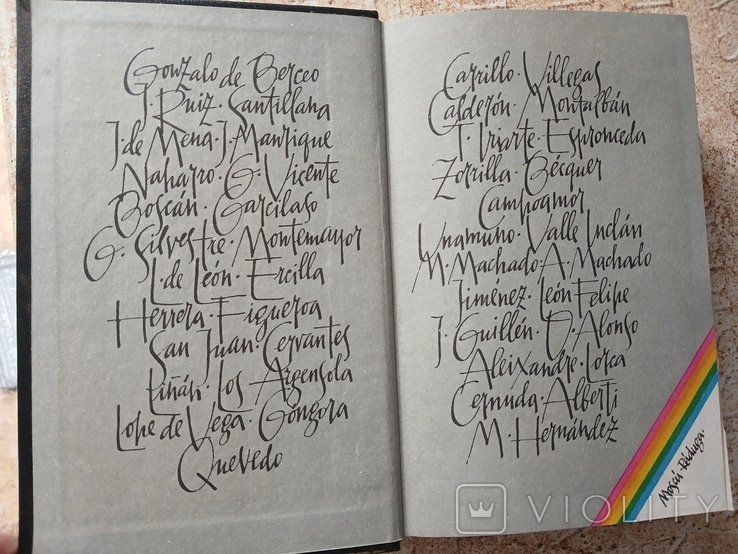 Gonzalo de Berceo
J. Ruiz · Santillana
J. de Mena · J. Manrique
Naharro · G. Vicente
Boscán · Garcilaso
G. Silvestre · Montemayor
L. de León · Ercilla
Herrera · Figueroa
San Juan · Cervantes
Liñán · Los Argensola
Lope de Vega · Góngora
Quevedo
Carrillo · Villegas
Calderón · Montalbán
T. Iriarte · Espronceda
Zorrilla · Bécquer
Campoamor
Unamuno · Valle Inclán
M. Machado · A. Machado
Jiménez · León Felipe
J. Guillén · D. Alonso
Aleixandre · Lorca
Cernuda · Alberti
M. Hernández
Moscú · Ráduga
VIOLITY